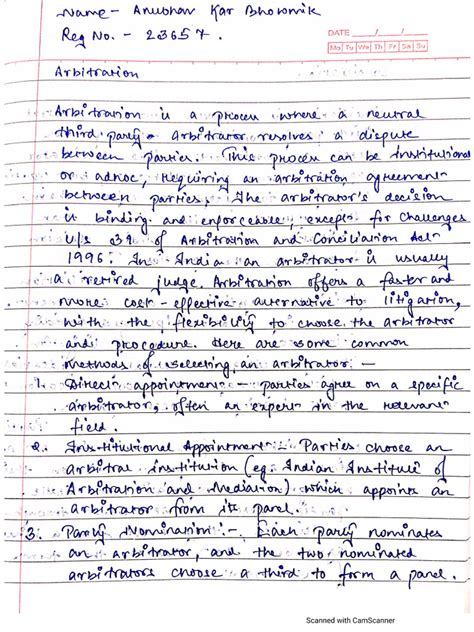 Name - Anubhav Kar Bhowmik
Reg No. - 23657.
DATE __/__/__
Mo Tu We Th Fr Sa Su
Arbitration
Arbitration is a process where a neutral
third party Arbitrator resolves a dispute
between parties. This process can be institutional
or adhoc, requiring an arbitration agreement
between parties, The arbitrator's decision
is binding and enforceable, except for challenges
u/s 34 of Arbitration and Conciliation Act
1996. In India an arbitrator is usually
a retired judge. Arbitration offers a faster and
more cost-effective alternative to litigation,
with the flexibility to choose the arbitrator
and procedure. Here are some common
methods of selecting an arbitrator -
1. Direct appointment - parties agree on a specific
arbitrator, often an expert in the relevant
field.
2. Institutional Appointment - Parties choose an
arbitral institution (eg. Indian Institute of
Arbitration and Mediation) which appoints an
arbitrator from its panel.
3. Party Nomination :- Each party nominates
an arbitrator, and the two nominated
arbitrators choose a third to form a panel.
Scanned with CamScanner